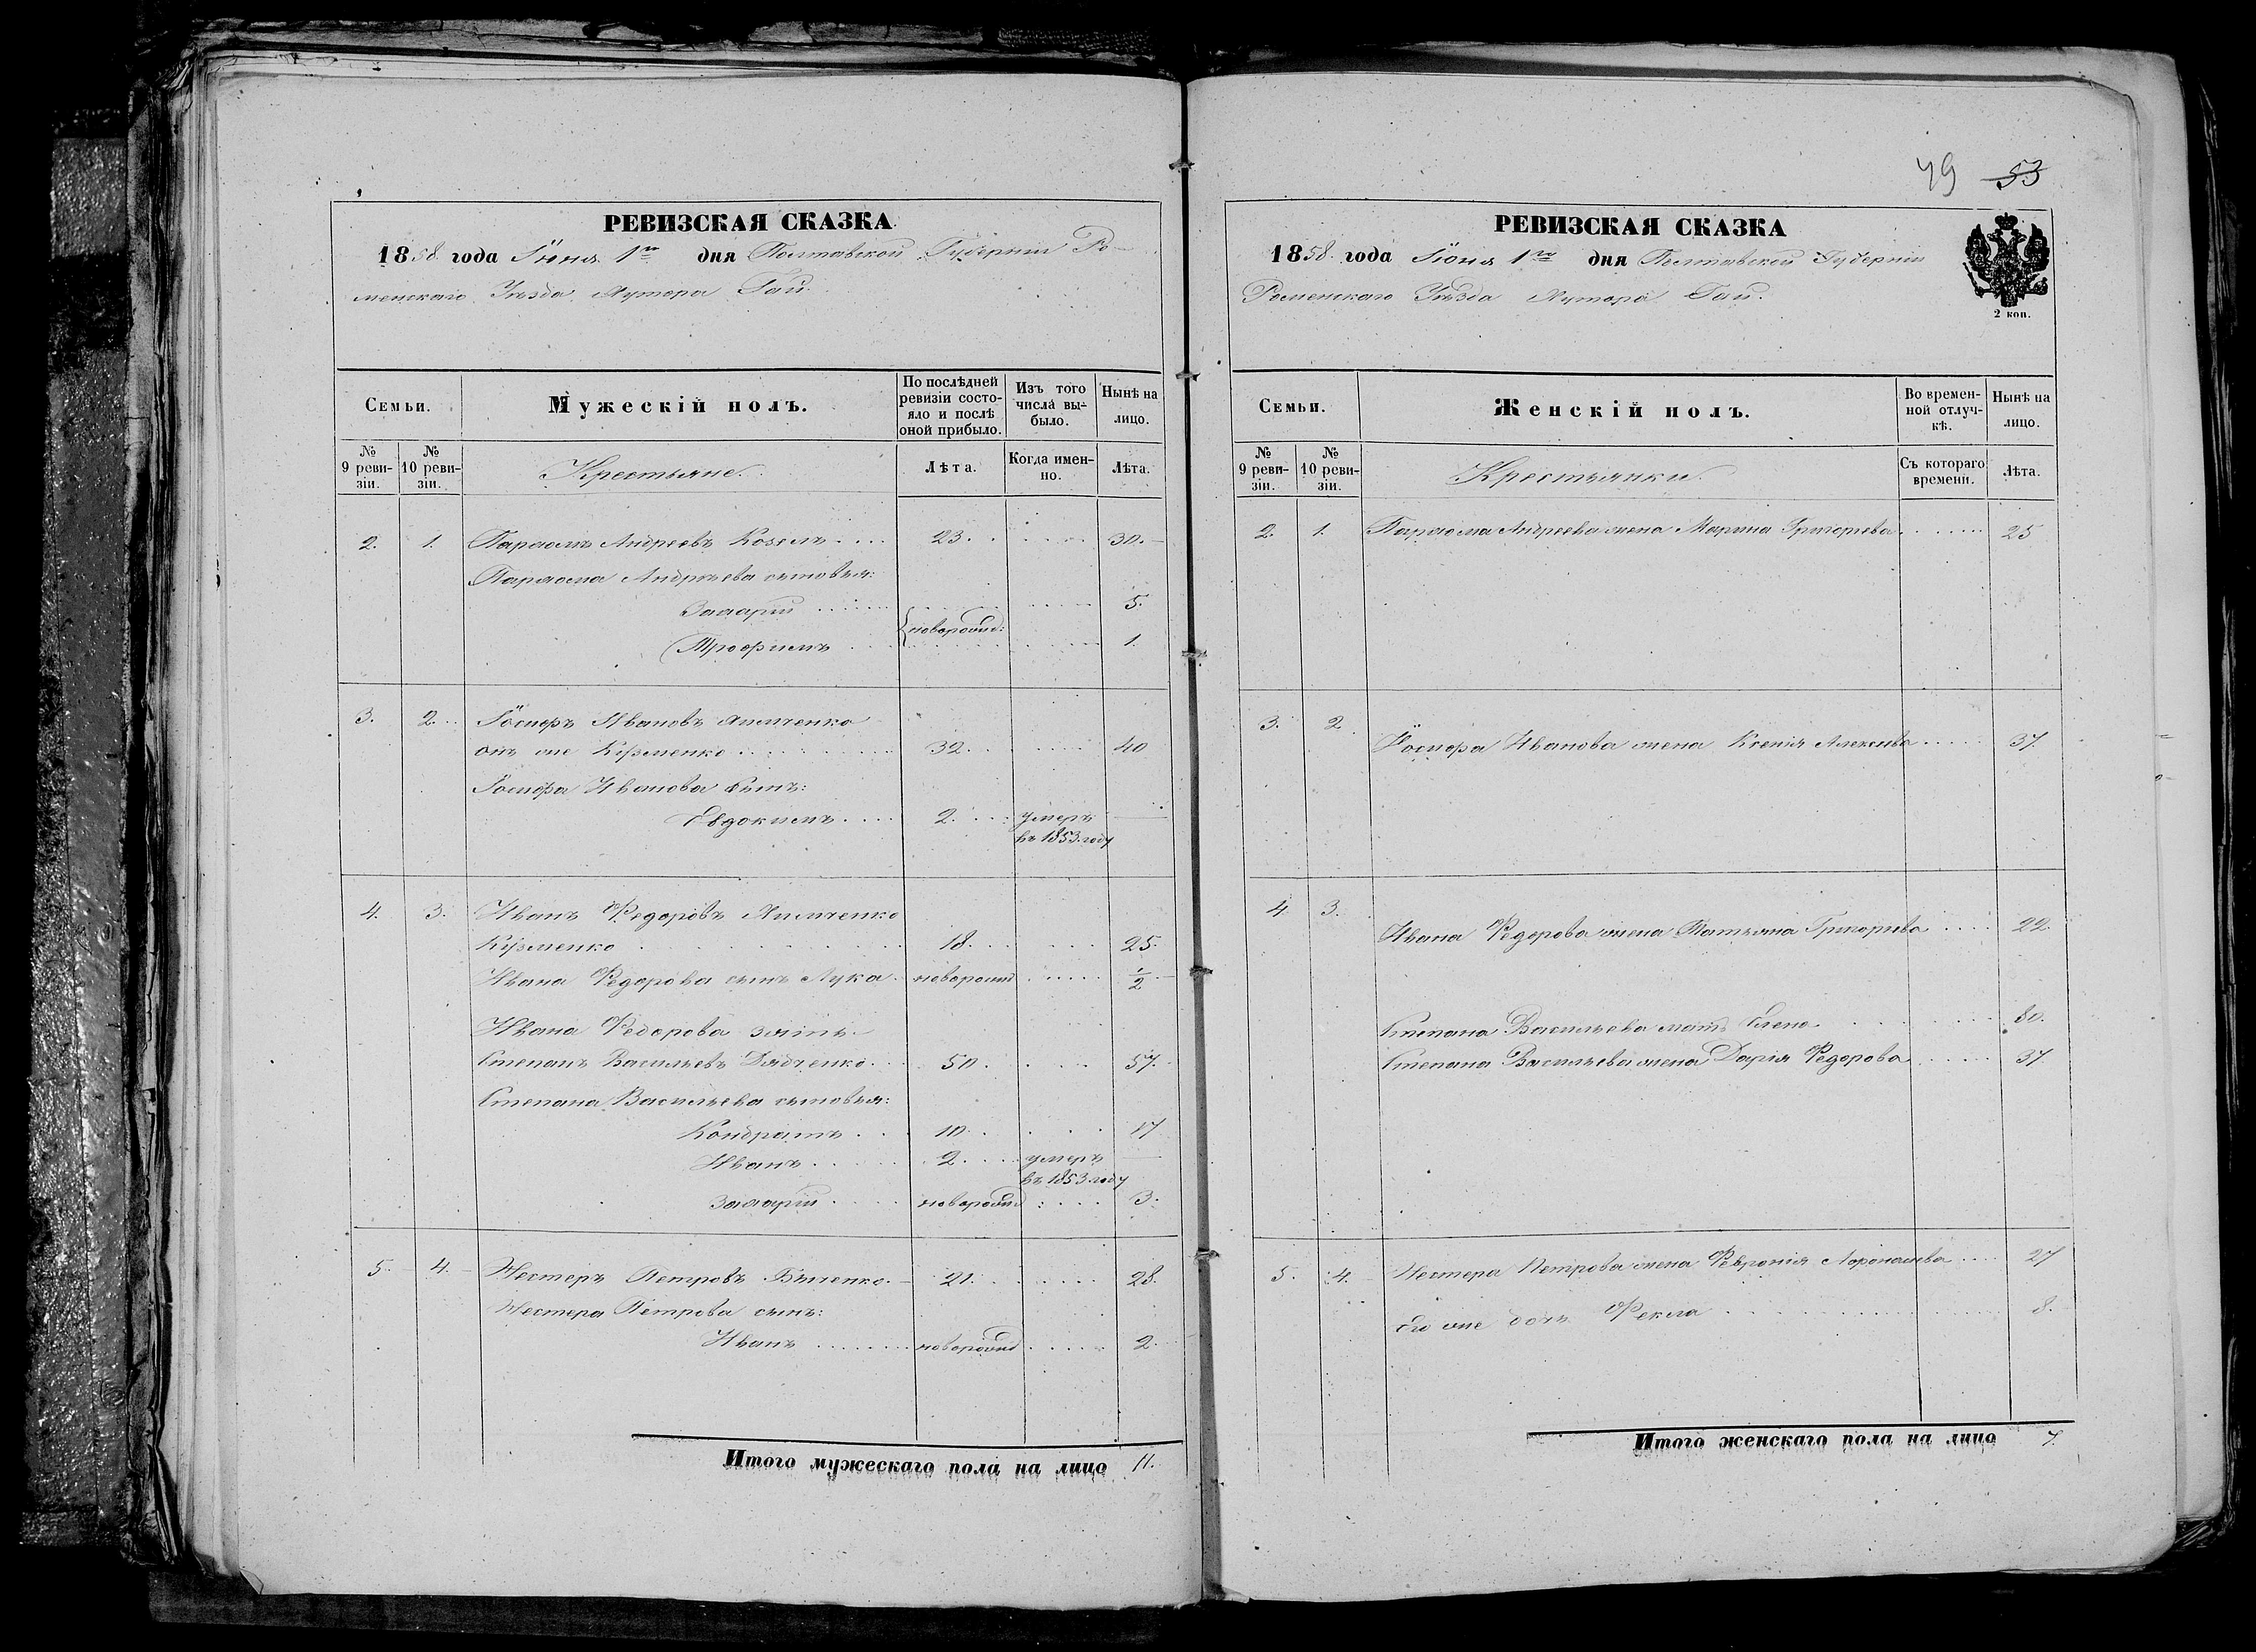 49 53
РЕВИЗСКАЯ СКАЗКА
1858 года Іюня 1го дня Полтавской Губерніи Ро-
менскаго Уѣзда Хутора Гай.
Семьи.
Мужескій полъ.
По послѣдней ревизіи состояло и послѣ оной прибыло.
Изъ того числа выбыло.
Нынѣ на лицо.
№ 9 ревизіи.
№ 10 ревизіи.
Крестьяне.
Лѣта.
Когда именно.
Лѣта.
2. 1. Пархомъ Андреевъ Козелъ 23. 30.
Пархома Андреева сыновья:
Захарій 5.
новорожд:
Трофимъ 1.
3. 2. Іосифъ Ивановъ
онъ же Кузменко 32. 40
Іосифа Иванова сынъ:
Евдокимъ 2. умеръ
въ 1853 году
4. 3. Иванъ Федоровъ
Кузменко 18. 25.
Ивана Федорова сынъ Лука новорожд 1/2
Ивана Федорова зять
Степанъ Васильевъ Дядченко 50. 57.
Степана Васильева сыновья:
Кондратъ 10. 17
Иванъ 2. умеръ
въ 1853 году
Захарій новорожд 3.
5. 4. Нестеръ Петровъ 21. 28.
Нестера Петрова сынъ:
Иванъ новорожд 2.
Итого мужескаго пола на лицо 11.
РЕВИЗСКАЯ СКАЗКА
1858 года Іюня 1го дня Полтавской Губерніи
Роменскаго Уѣзда Хутора Гай.
2 коп.
Семьи.
Женскій полъ.
Во временной отлучкѣ.
Нынѣ на лицо.
№ 9 ревизіи.
№ 10 ревизіи.
Крестьянки.
Съ котораго времени.
Лѣта.
2. 1. Пархома Андреева жена Марина Григорьева 25
3. 2. Іосифа Иванова жена Ксенія Алексѣева 37.
4 3. Ивана Федорова жена Татьяна Григорьева 22.
Степана Васильева мать Елена 80.
Степана Васильева жена Дарія Федорова 37.
5. 4. Нестера Петрова жена Февронія Афонасіева 27
Его же дочь Фекла 8.
Итого женскаго пола на лицо 7.